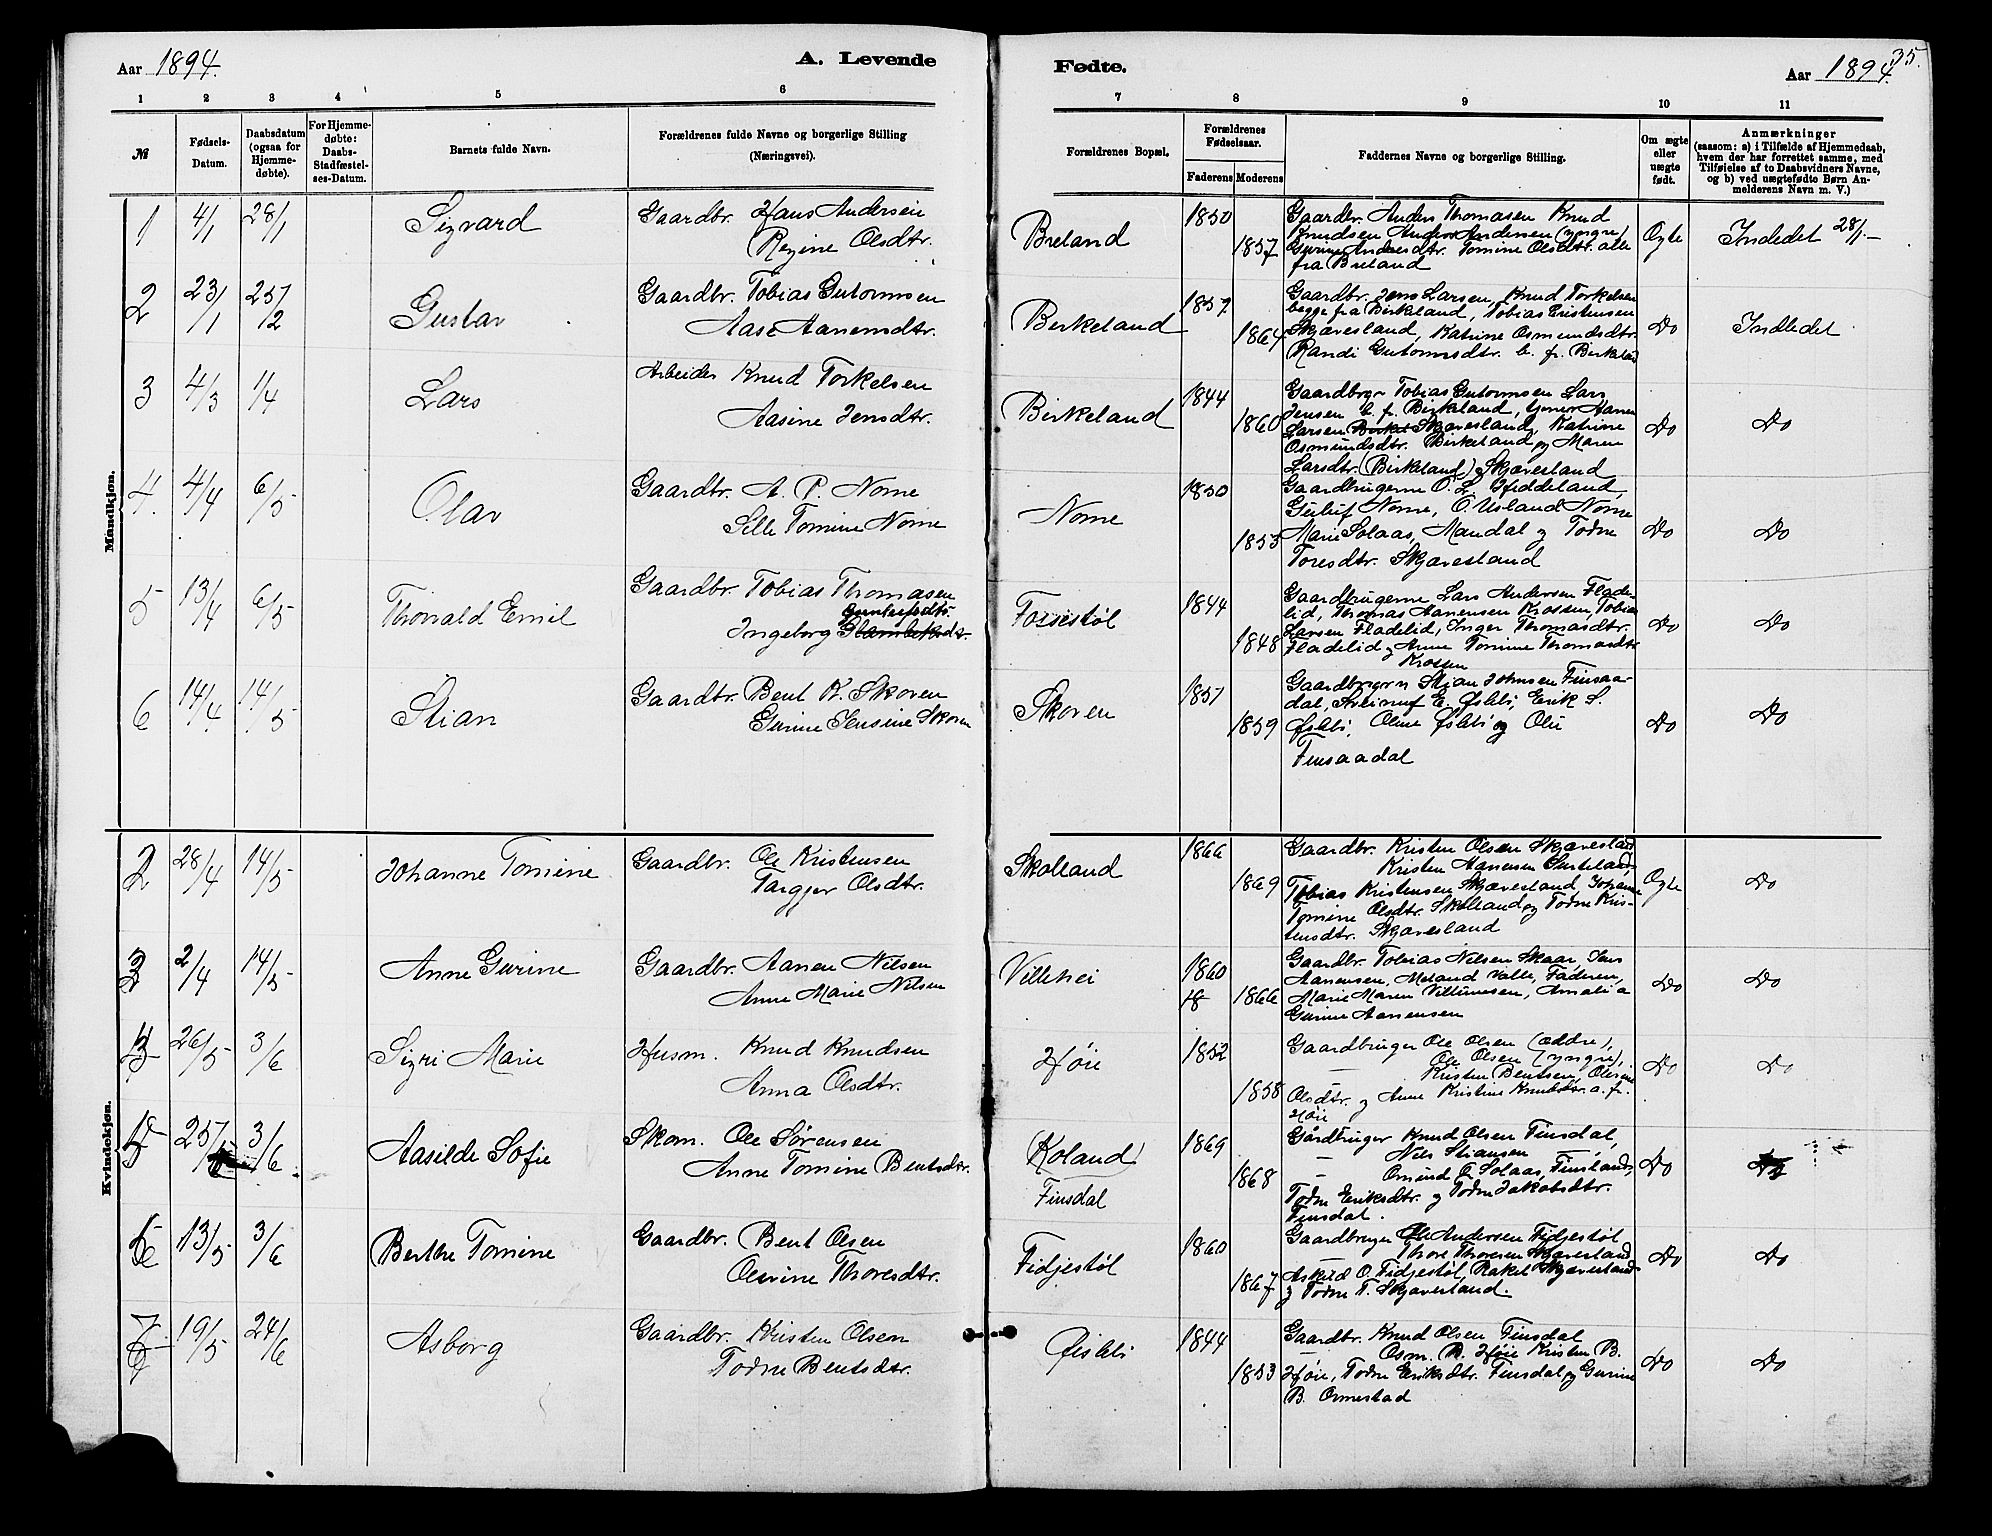 Aar 1894.
A. Levende
1 2 3 4 5 6
№
Fødsels-
Datum.
Daabsdatum
(ogsaa for
Hjemme-
døbte).
For Hjemme-
døbte:
Daabs-
Stadfæstel-
ses-Datum.
Barnets fulde Navn.
Forældrenes fulde Navne og borgerlige Stilling
(Næringsvei).
Mandkjøn.
1 4/1 28/1 Sigvard Gaardbr. Hans Andersen
Regine Olsdtr.
2 23/1 25/2 Gustav Gaardbr. Tobias Gutormsen
Aase Aanensdtr.
3 4/3 1/4 Lars Arbeider Knud Torkelsen
Aasine Jensdtr.
4. 4/4 6/5 Olav Gaardbr. A. P. Nome
Sille Tomine Nome
5 13/4 6/5 Thorvald Emil Gaardbr. Tobias Thomasen
Ingeborg
6 14/4 14/5 Stian Gaardbr. Bent K. Skoven
Gurine Jensine Skoven
Kvindekjøn.
2 28/4 14/5 Johanne Tomine Gaardbr. Ole Kristensen
Targjer Olsdtr.
3 2/4 14/5 Anne Gurine Gaardbr. Aanen Nilsen
Anne Marie Nilsen
4 26/5 3/6 Sigri Marie Husm. Knud Knudsen
Anna Olsdtr.
5 25/ 3/6 Aasilde Sofie Skom. Ole Sørensen
Anne Tomine Bentsdtr.
6 13/5 3/6 Berthe Tomine Gaardbr. Bent Olsen
Olevine Thoresdtr.
7 19/5 24/6 Asborg Gaardbr. Kristen Olsen
Todne Bentsdtr.
Fødte.
Aar 1894.
35.
7 8 9 10 11
Forældrenes Bopæl.
Forældrenes
Fødselsaar.
Faderens Moderens
Faddernes Navne og borgerlige Stilling.
Om ægte
eller
uægte
født.
Anmærkninger
(saasom: a) i Tilfælde af Hjemmedaab,
hvem der har forrettet samme, med
Tilføielse af to Daabsvidners Navne,
og b) ved uægtefødte Børn An-
melderens Navn m. V.)
Breland 1850 1857 Gaardbr. Anders Thomasen Knud
Knudsen Anders Andersen (yngre)
Gurine Andersdtr. Tomine Olsdtr. alle
fra Breland
Ægte Indledet 28/1.
Birkeland 1857 1864 Gaardbr. Jens Larsen, Knud Torkelsen
begge fra Birkeland, Tobias Eristensen
Skjævesland, Katrine Osmundsdtr.
Randi Gutormsdtr. b. fr. Birkeland
Do Indledet
Birkeland 1844 1860 Gaardbrgr Tobias Gutormsen Lars
Jensen b. fr. Birkeland,
Larsen Skjævesland, Katrine
Osmundsdtr. Birkeland og Maren
Larsdtr. (Birkeland) Skjævesland
Do Do
Nome 1850 1853 Gaardbrugerne O. L. Hiddeland,
Nome, O. Usland Nome
Marie Solaas, Mandal og Todne
Toresdtr. Skjævesland
Do Do
Fossestøl 1844 1848 Gaardbrugerne Lars Andersen Flade-
lid, Thomas Aanensen Krossen, Tobias
Larsen Fladelid, Inger Thomasdtr.
Fladelid og Anne Tomine Thomasdtr
Krossen
Do Do
Skoven 1857 1859 Gaardbrgrn Stian Johnsen Finsaa-
dal, E. Øslebi, Erik S.
Øslebi, Oline Øslebi og Olie
Finsaadal
Do Do
Skolland 1866 1869 Gaardbr. Kristen Olsen Skjævesland
Kristen Aanensen
Tobias Kristensen Skjævesland, Johanne
Tomine Olsdtr. Skolland og Todne Kris-
tensdtr. Skjævesland
Ægte Do
Villehei 1860 1866 Gaardbr. Tobias Nilsen Skaar, Jens
Aanensen, Meland Valle, Faderen,
Marie Maren Villumsen, Amalia
Gurine Aanensen
Do Do
Høie 1852 1858 Gaardbruger Ole Olsen (ældre),
— Ole Olsen (yngre),
Kristen Bentsen, Olevine
Olsdtr. og Anne Kristine Knudsdtr. a. fr.
Høie
Do Do
(Koland)
Finsdal
1869 1868 Gårdbruger Knud Olsen Finsdal,
— Nils Stiansen —,
— Omund O. Solaas, Finsland,
Todne Eriksdtr. og Todne Jakobsdtr.
Finsdal.
Do Do
Fidjestøl 1860 1867 Gaardbruger Ole Andersen Fidjestøl
— Thore Thoresen Skjævesland
Askild O. Fidjestøl, Rakel Skjævesland
og Todne T. Skjævesland.
Do Do
Øislebi 1844 1853 Gaardbr. Knud Olsen Finsdal
— Osm. B. Høie Kristen B.
Høie, Todne Eriksdtr. Finsdal og Gurine
B. Ormestad
Do Do